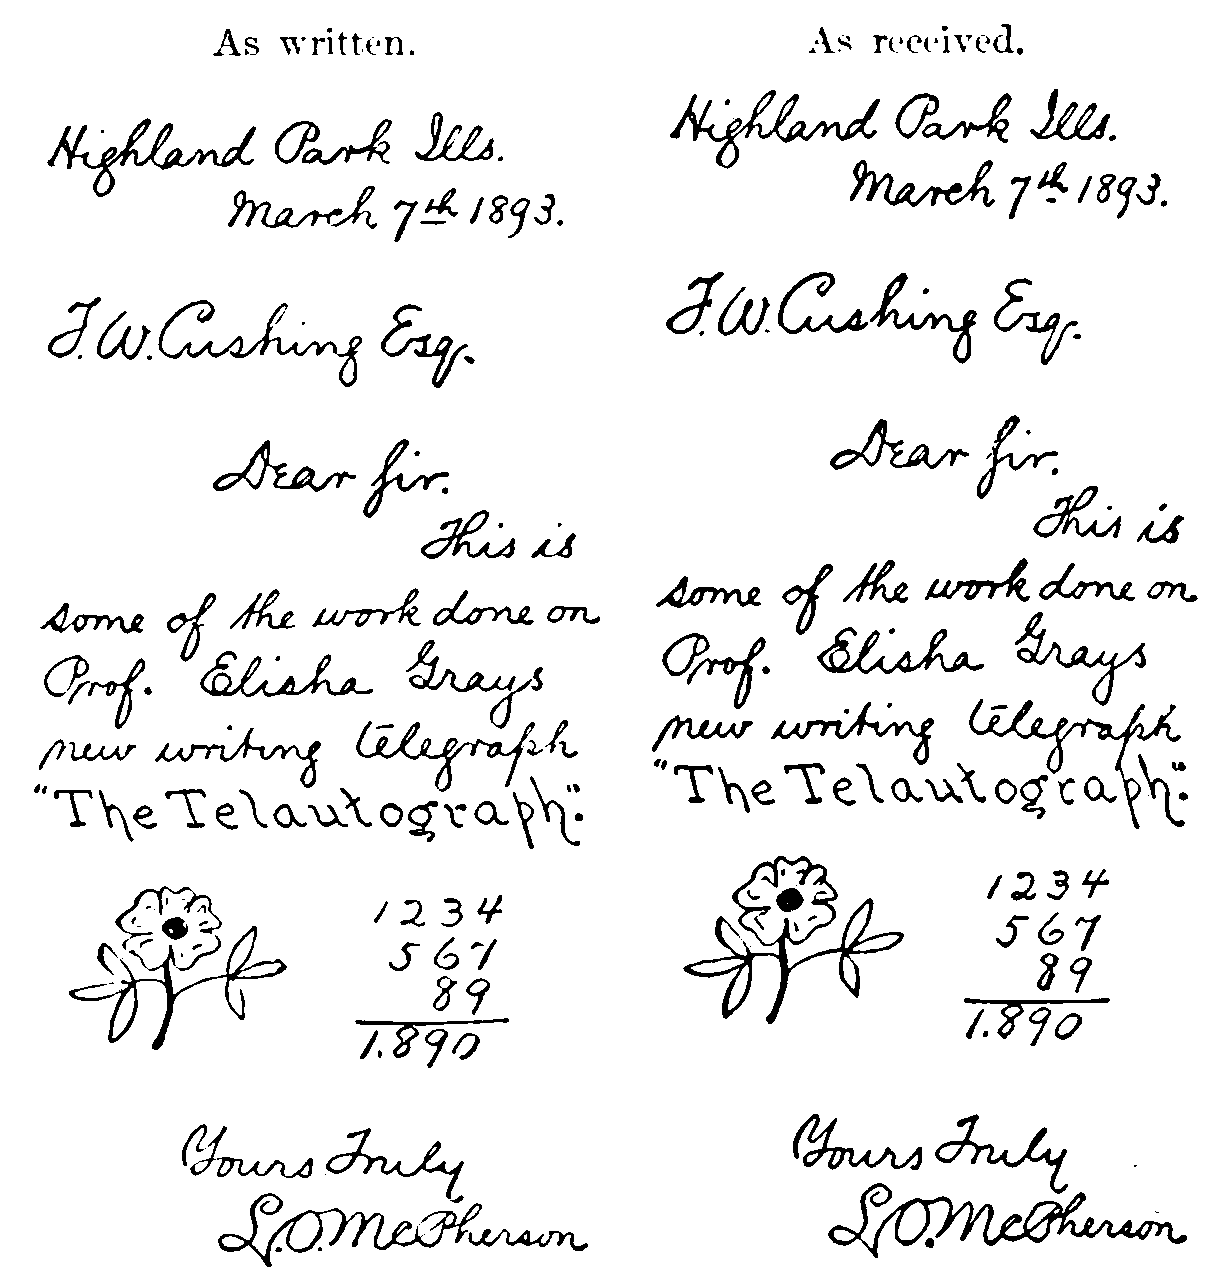 As written.
Highland Park Ills.
March 7th 1893.
F.W. Cushing Esq.
Dear Sir.
This is
some of the work done on
Prof. Elisha Grays
new writing telegraph
"The Telautograph".
1234
567
89
1.890
Yours Truly
L.O. McPherson
As received.
Highland Park Ills.
March 7th 1893.
F.W. Cushing Esq.
Dear Sir.
This is
some of the work done on
Prof. Elisha Grays
new writing telegraph
"The Telautograph".
1234
567
89
1.890
Yours Truly
L.O. McPherson.